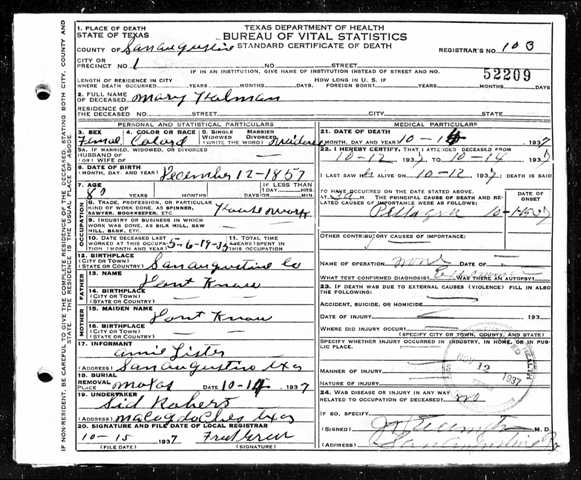 TEXAS DEPARTMENT OF HEALTH
BUREAU OF VITAL STATISTICS
STANDARD CERTIFICATE OF DEATH
1. PLACE OF DEATH
STATE OF TEXAS
COUNTY OF San Augustine
REGISTRAR'S NO. 103
CITY OR PRECINCT NO. 1 NO. STREET
IF IN AN INSTITUTION, GIVE NAME OF INSTITUTION INSTEAD OF STREET AND NO.
52209
LENGTH OF RESIDENCE IN CITY WHERE DEATH OCCURRED YEARS MONTHS DAYS
HOW LONG IN U. S. IF FOREIGN BORN? YEARS MONTHS DAYS
2. FULL NAME OF DECEASED Mary
RESIDENCE OF THE DECEASED NO. STREET CITY STATE
PERSONAL AND STATISTICAL PARTICULARS
3. SEX 4. COLOR OR RACE 5. SINGLE MARRIED WIDOWED DIVORCED (WRITE THE WORD)
Femal Colord
5A. IF MARRIED, WIDOWED, OR DIVORCED
HUSBAND OF (OR) WIFE OF
6. DATE OF BIRTH (MONTH, DAY, AND YEAR) December 12-1857
7. AGE IF LESS THAN 1 DAY
8. TRADE, PROFESSION, OR PARTICULAR KIND OF WORK DONE, AS SPINNER, SAWYER, BOOKKEEPER, ETC House work
9. INDUSTRY OR BUSINESS IN WHICH WORK WAS DONE, AS SILK MILL, SAW MILL, BANK, ETC.
10. DATE DECEASED LAST WORKED AT THIS OCCUPATION (MONTH AND YEAR)
12. BIRTHPLACE (CITY OR TOWN) (STATE OR COUNTRY) San Augustine Co
FATHER
13. NAME Dont Know
14. BIRTHPLACE (CITY OR TOWN) (STATE OR COUNTRY)
MOTHER
15. MAIDEN NAME Dont Know
16. BIRTHPLACE (CITY OR TOWN) (STATE OR COUNTRY)
17. INFORMANT Annie Lister
(ADDRESS) San Augustine
18. BURIAL REMOVAL
PLACE DATE 10-14 1937
19. UNDERTAKER Sid Roberts
(ADDRESS)
20. SIGNATURE AND FILE DATE OF LOCAL REGISTRAR
10-15 1937
(FILE DATE) (SIGNATURE)
MEDICAL PARTICULARS
21. DATE OF DEATH
(MONTH, DAY, AND YEAR) 10-14 1937
22. I HEREBY CERTIFY, THAT I ATTENDED DECEASED FROM
10-12 1937 TO 10-14 193
I LAST SAW ALIVE ON 10-12 1937 DEATH IS SAID
TO HAVE OCCURRED ON THE DATE STATED ABOVE.
THE PRINCIPAL CAUSE OF DEATH AND RELATED CAUSES OF IMPORTANCE WERE AS FOLLOWS:
DATE OF ONSET
Pellagra
OTHER CONTRIBUTORY CAUSES OF IMPORTANCE:
NAME OF OPERATION none DATE OF
WHAT TEST CONFIRMED DIAGNOSIS? WAS THERE AN AUTOPSY?
23. IF DEATH WAS DUE TO EXTERNAL CAUSES (VIOLENCE) FILL IN ALSO THE FOLLOWING:
ACCIDENT, SUICIDE, OR HOMICIDE
DATE OF INJURY 193
WHERE DID INJURY OCCUR?
(SPECIFY CITY OR TOWN, COUNTY, AND STATE)
SPECIFY WHETHER INJURY OCCURRED IN INDUSTRY, IN HOME, OR IN PUBLIC PLACE.
MANNER OF INJURY
NATURE OF INJURY
NOV 12 1937
24. WAS DISEASE OR INJURY IN ANY WAY RELATED TO OCCUPATION OF DECEASED? no
IF SO, SPECIFY
(SIGNED) M.D.
(ADDRESS) San Augustine